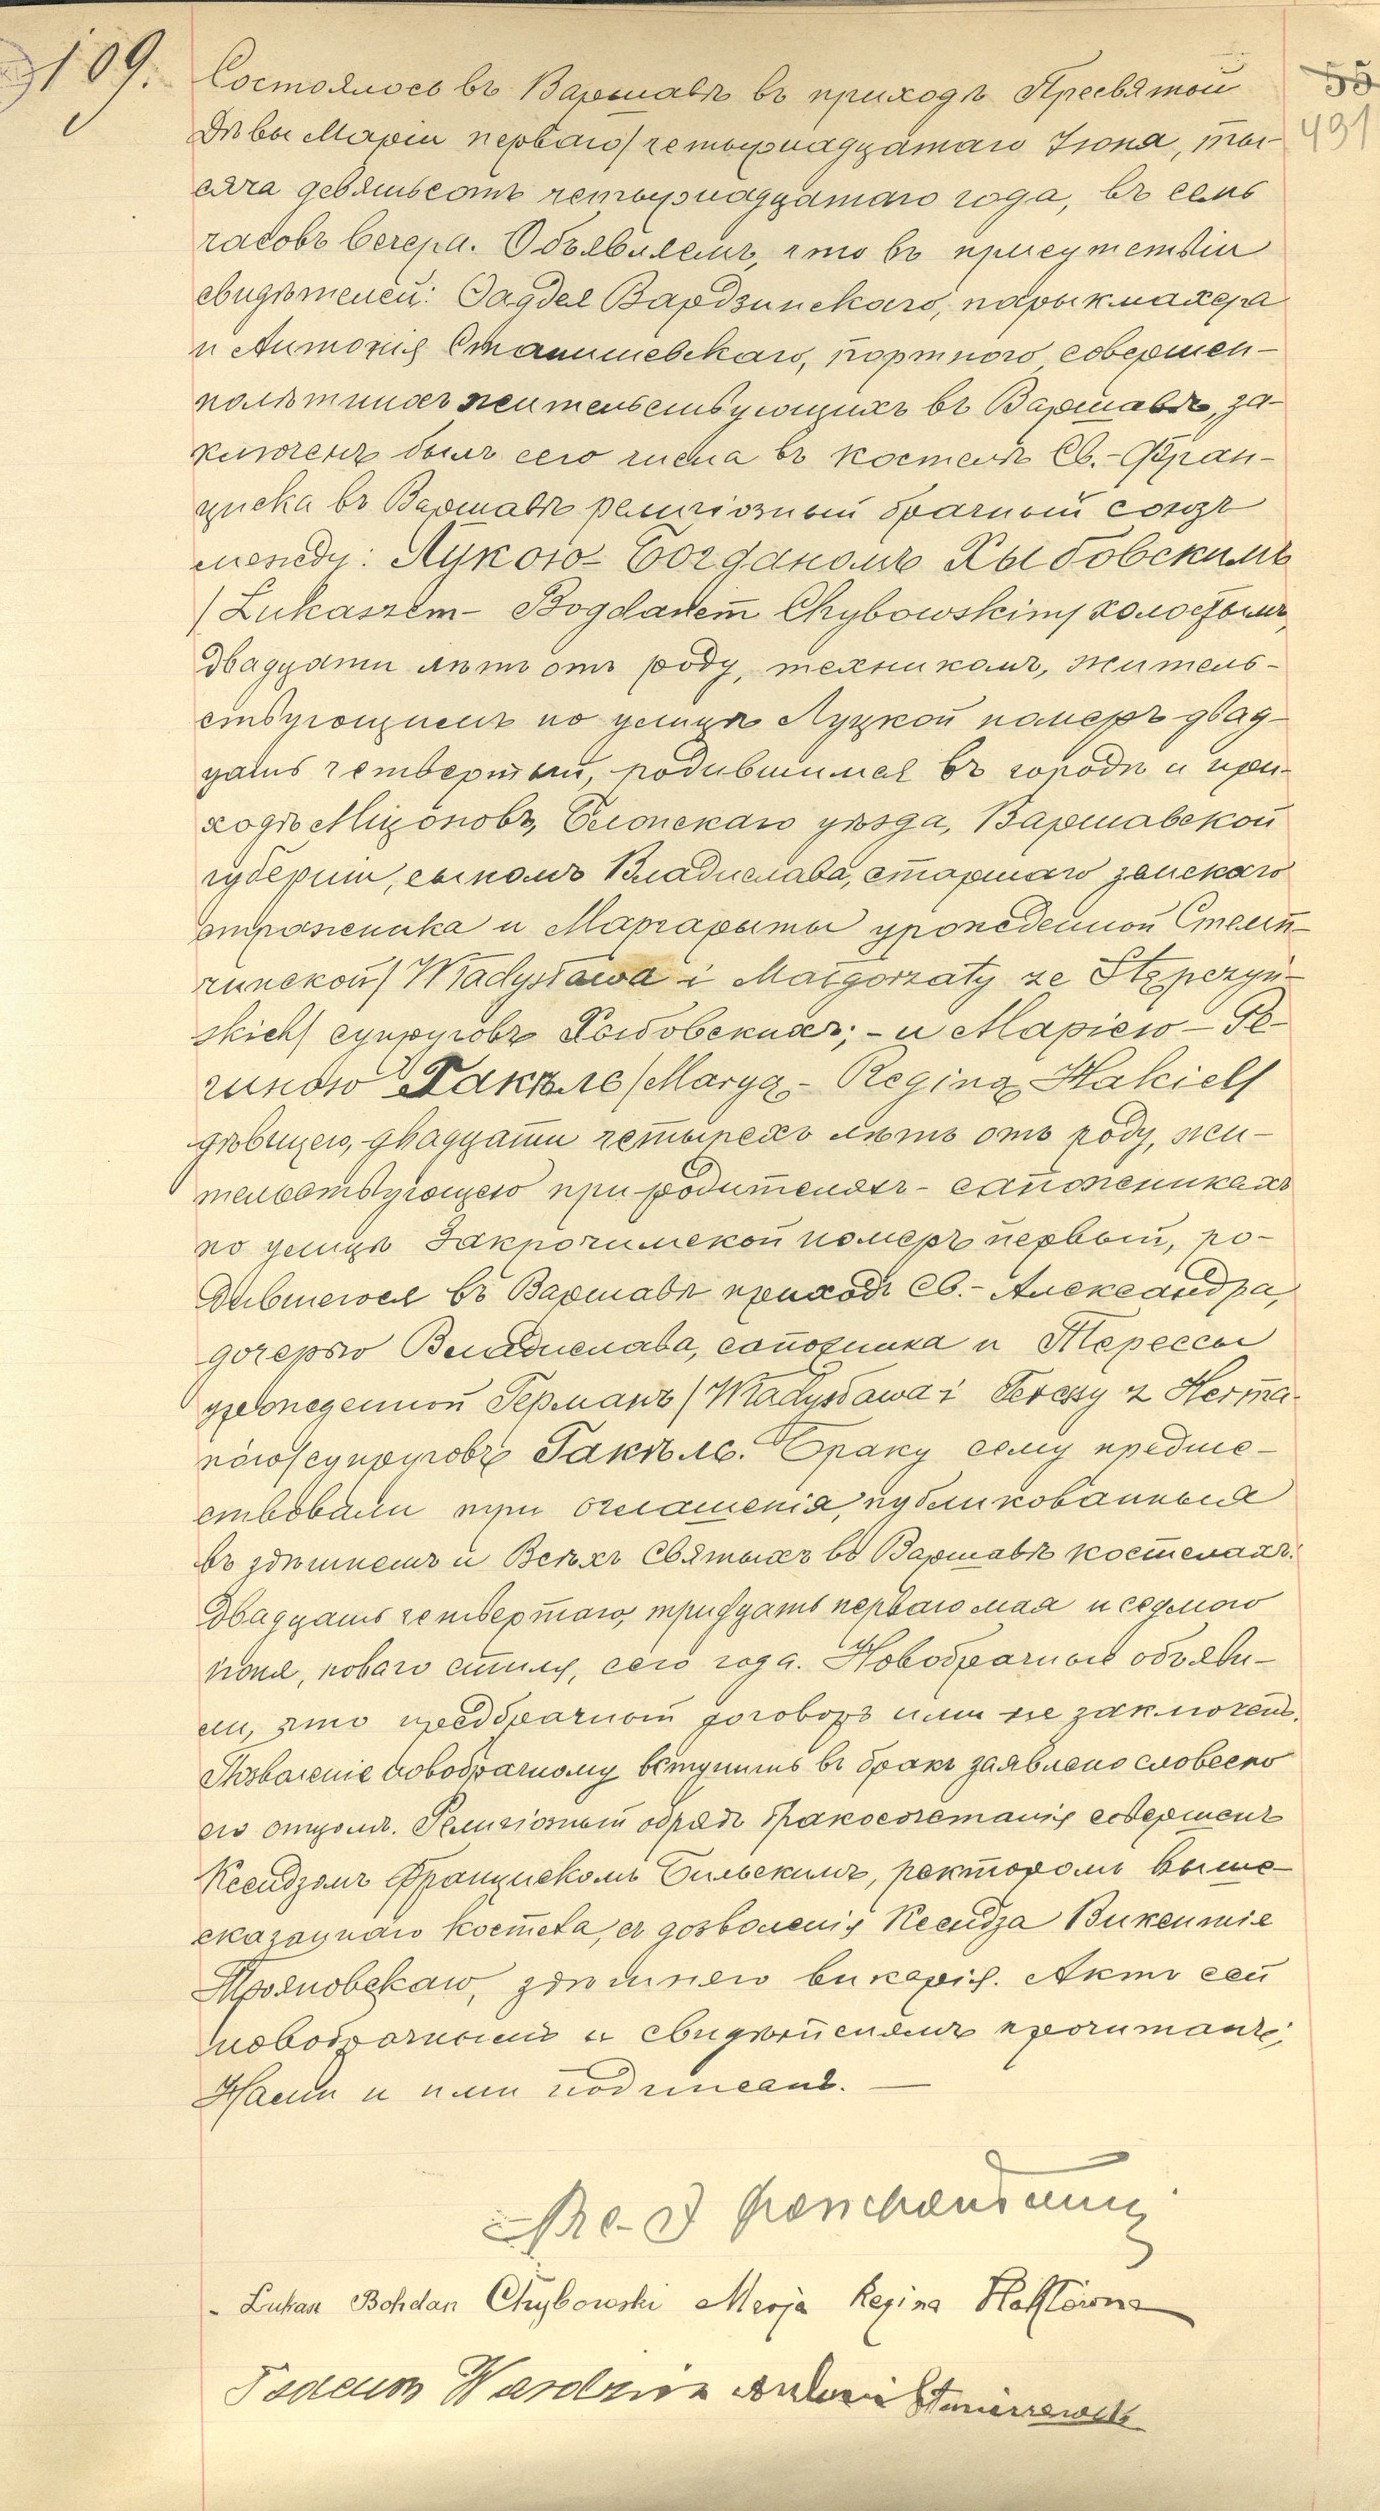 109.
55
491
Состоялось въ Варшавѣ въ приходѣ Пресвятой
Дѣвы Маріи перваго/четырнадцатаго Іюня, ты-
сяча девятьсотъ четырнадцатаго года, въ семь
часовъ вечера. Объявляемъ, что въ присутствіи
свидѣтелей: Фаддея Вардзинскаго, парыкмахера
и Антонія Станишевскаго, портного совершен-
нолѣтнихъ жительствующихъ въ Варшавѣ, за-
ключенъ былъ сего числа въ костелѣ Св.-Фран-
циска въ Варшавѣ религіозный брачный союзъ
между: Лукою-Богданомъ Хыбовскимъ
/Łukaszem-Bogdanem Chybowskim/ холостымъ,
двадцати лѣтъ отъ роду, техникомъ, житель-
ствующимъ по улицѣ Луцкой номеръ двад-
цать четвертый, родившимся въ городѣ и при-
ходѣ Мщоновъ, Блонскаго уѣзда, Варшавской
губерніи, сыномъ Владислава, старшаго земскаго
стражника и Маргарыты урожденной Стемп-
чинской/Władysława i Małgorzaty ze Stępczyń-
skich/ супруговъ Хыбовскихъ; - и Маріею-Ре-
гиною Гакѣль /Maryą-Reginą Hakiel/
дѣвицею, двадцати четырехъ лѣтъ отъ роду, жи-
тельствующею при родителяхъ-сапожникахъ
по улицѣ Закрочимской номеръ первый, ро-
дившеюся въ Варшавѣ приходѣ Св.-Александра,
дочерью Владислава, сапожника и Терессы
урожденной Германъ /Władysława i Teressy z Herma-
nów/супруговъ Гакѣль. Браку сему предше-
ствовали три оглашенія, публикованныя
въ здѣшнемъ и Всѣхъ Святыхъ въ Варшавѣ костелахъ:
двадцать четвертаго, тридцать перваго мая и седмого
іюня, новаго стиля, сего года. Новобрачные объяви-
ли, что предбрачный договоръ ими не заключенъ.
Позволеніе новобрачному вступить въ бракъ заявлено словесно
его отцомъ. Религіозный обрядъ бракосочетанія совершенъ
Ксендзомъ Францискомъ Бильскимъ, ректоромъ выше-
сказаннаго костела, съ дозволенія Ксендза Викентія
Трояновскаго, здѣшняго викарія. Актъ сей
новобрачнымъ и свидѣтелямъ прочитанъ,
Нами и ими подписанъ. —
Łukasz Bohdan Chybowski Marja Regina
Tadeusz Antoni Staniszewski